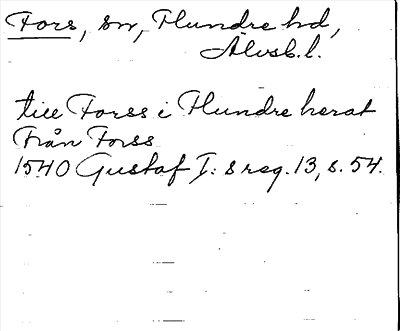 Fors, sn, Flundre hd,
Älvsb. l.
till Forss i Flundre herat
Från Forss
1540 Gustaf I: s reg. 13, s. 54.